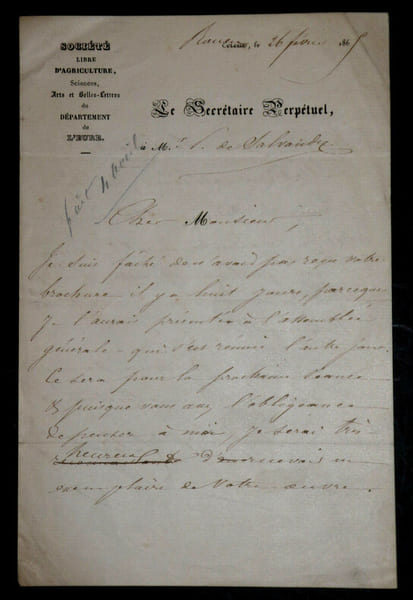 SOCIÉTÉ
LIBRE
D'AGRICULTURE,
Sciences,
Arts et Belles-Lettres
du
DÉPARTEMENT
de
L'EURE.
Evreux, le 26 février 1865
Le Secrétaire Perpétuel,
à M. r de Salvandy
fait 4 avril
Cher Monsieur,
Je suis fâché de n'avoir pas reçu votre
brochure il y a huit jours, parceque
je l'aurais présentée à l'assemblée
générale qui s'est réunie l'autre jour.
Ce sera pour la prochaine séance
& puisque vous avez l'obligeance
de penser à moi, je serai très
heureux de recevoir un
exemplaire de votre œuvre.